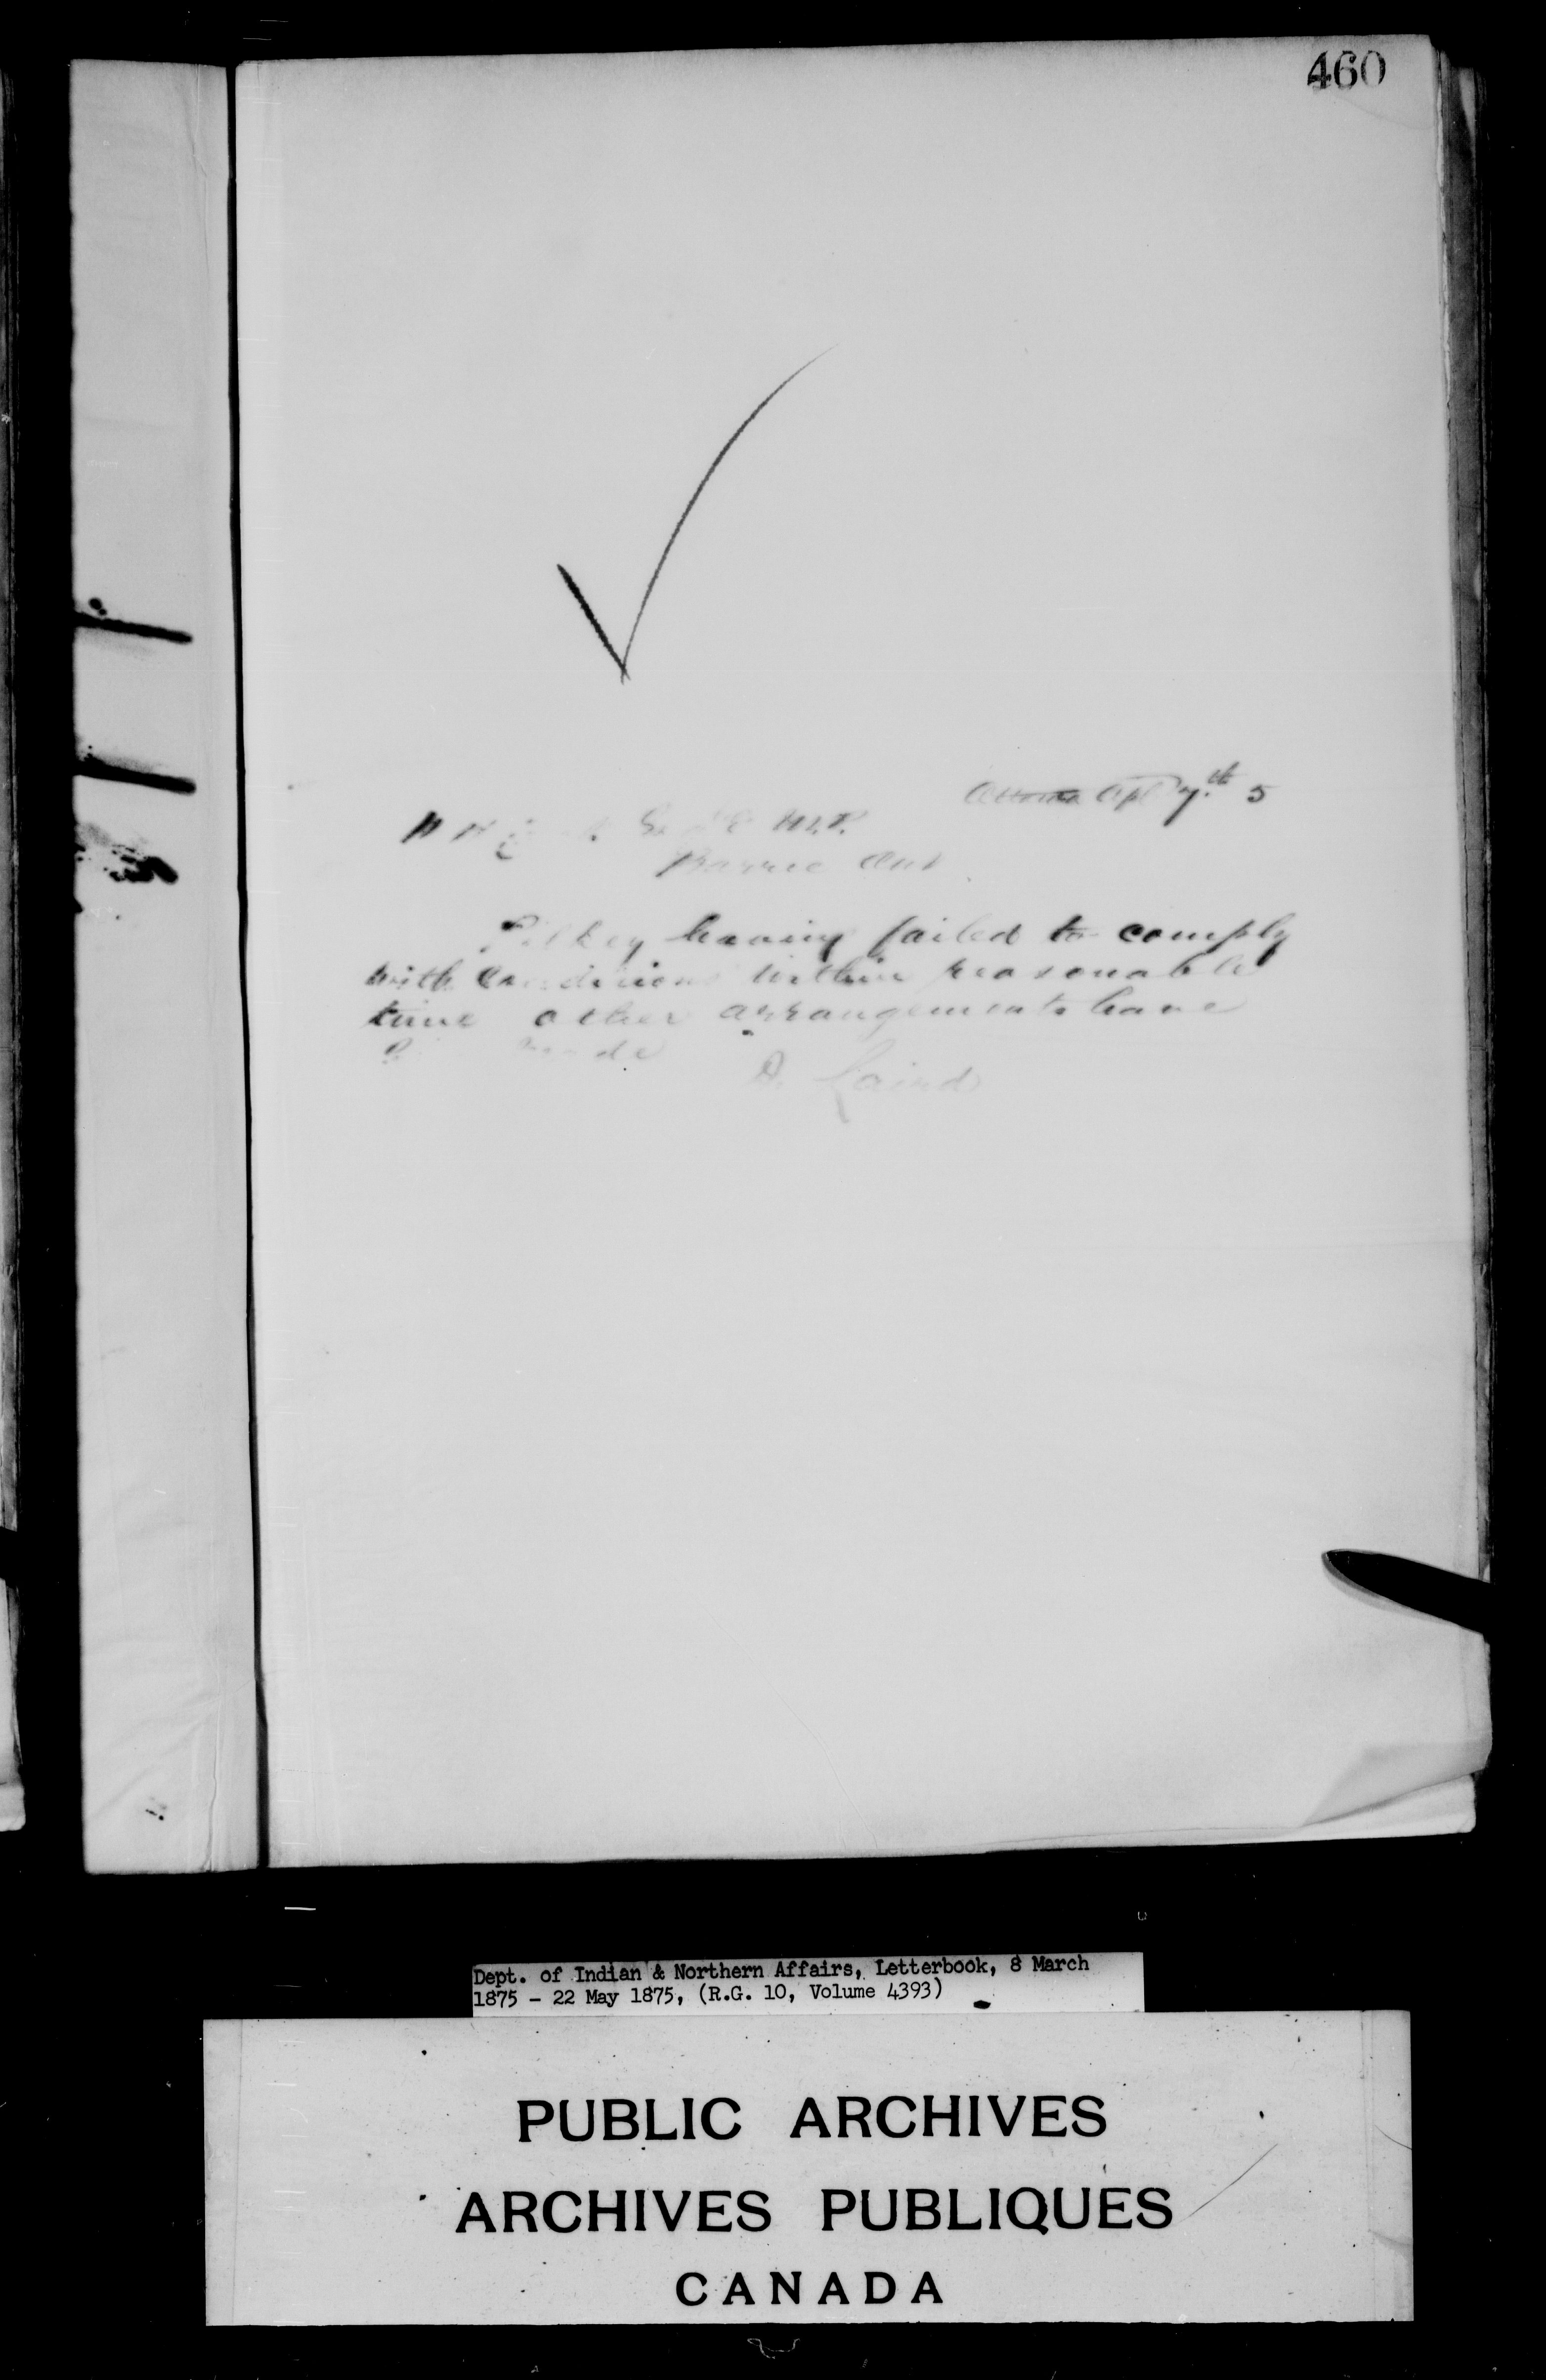 460
Ottawa Apl 7th 5
Esq M.P.
Barrie Ont
having failed to comply
with conditions within reasonable
time other arrangements have
made
D. Laird
Dept. of Indian & Northern Affairs, Letterbook, 8 March
1875 - 22 May 1875, (R.G. 10, Volume 4393)
PUBLIC ARCHIVES
ARCHIVES PUBLIQUES
CANADA